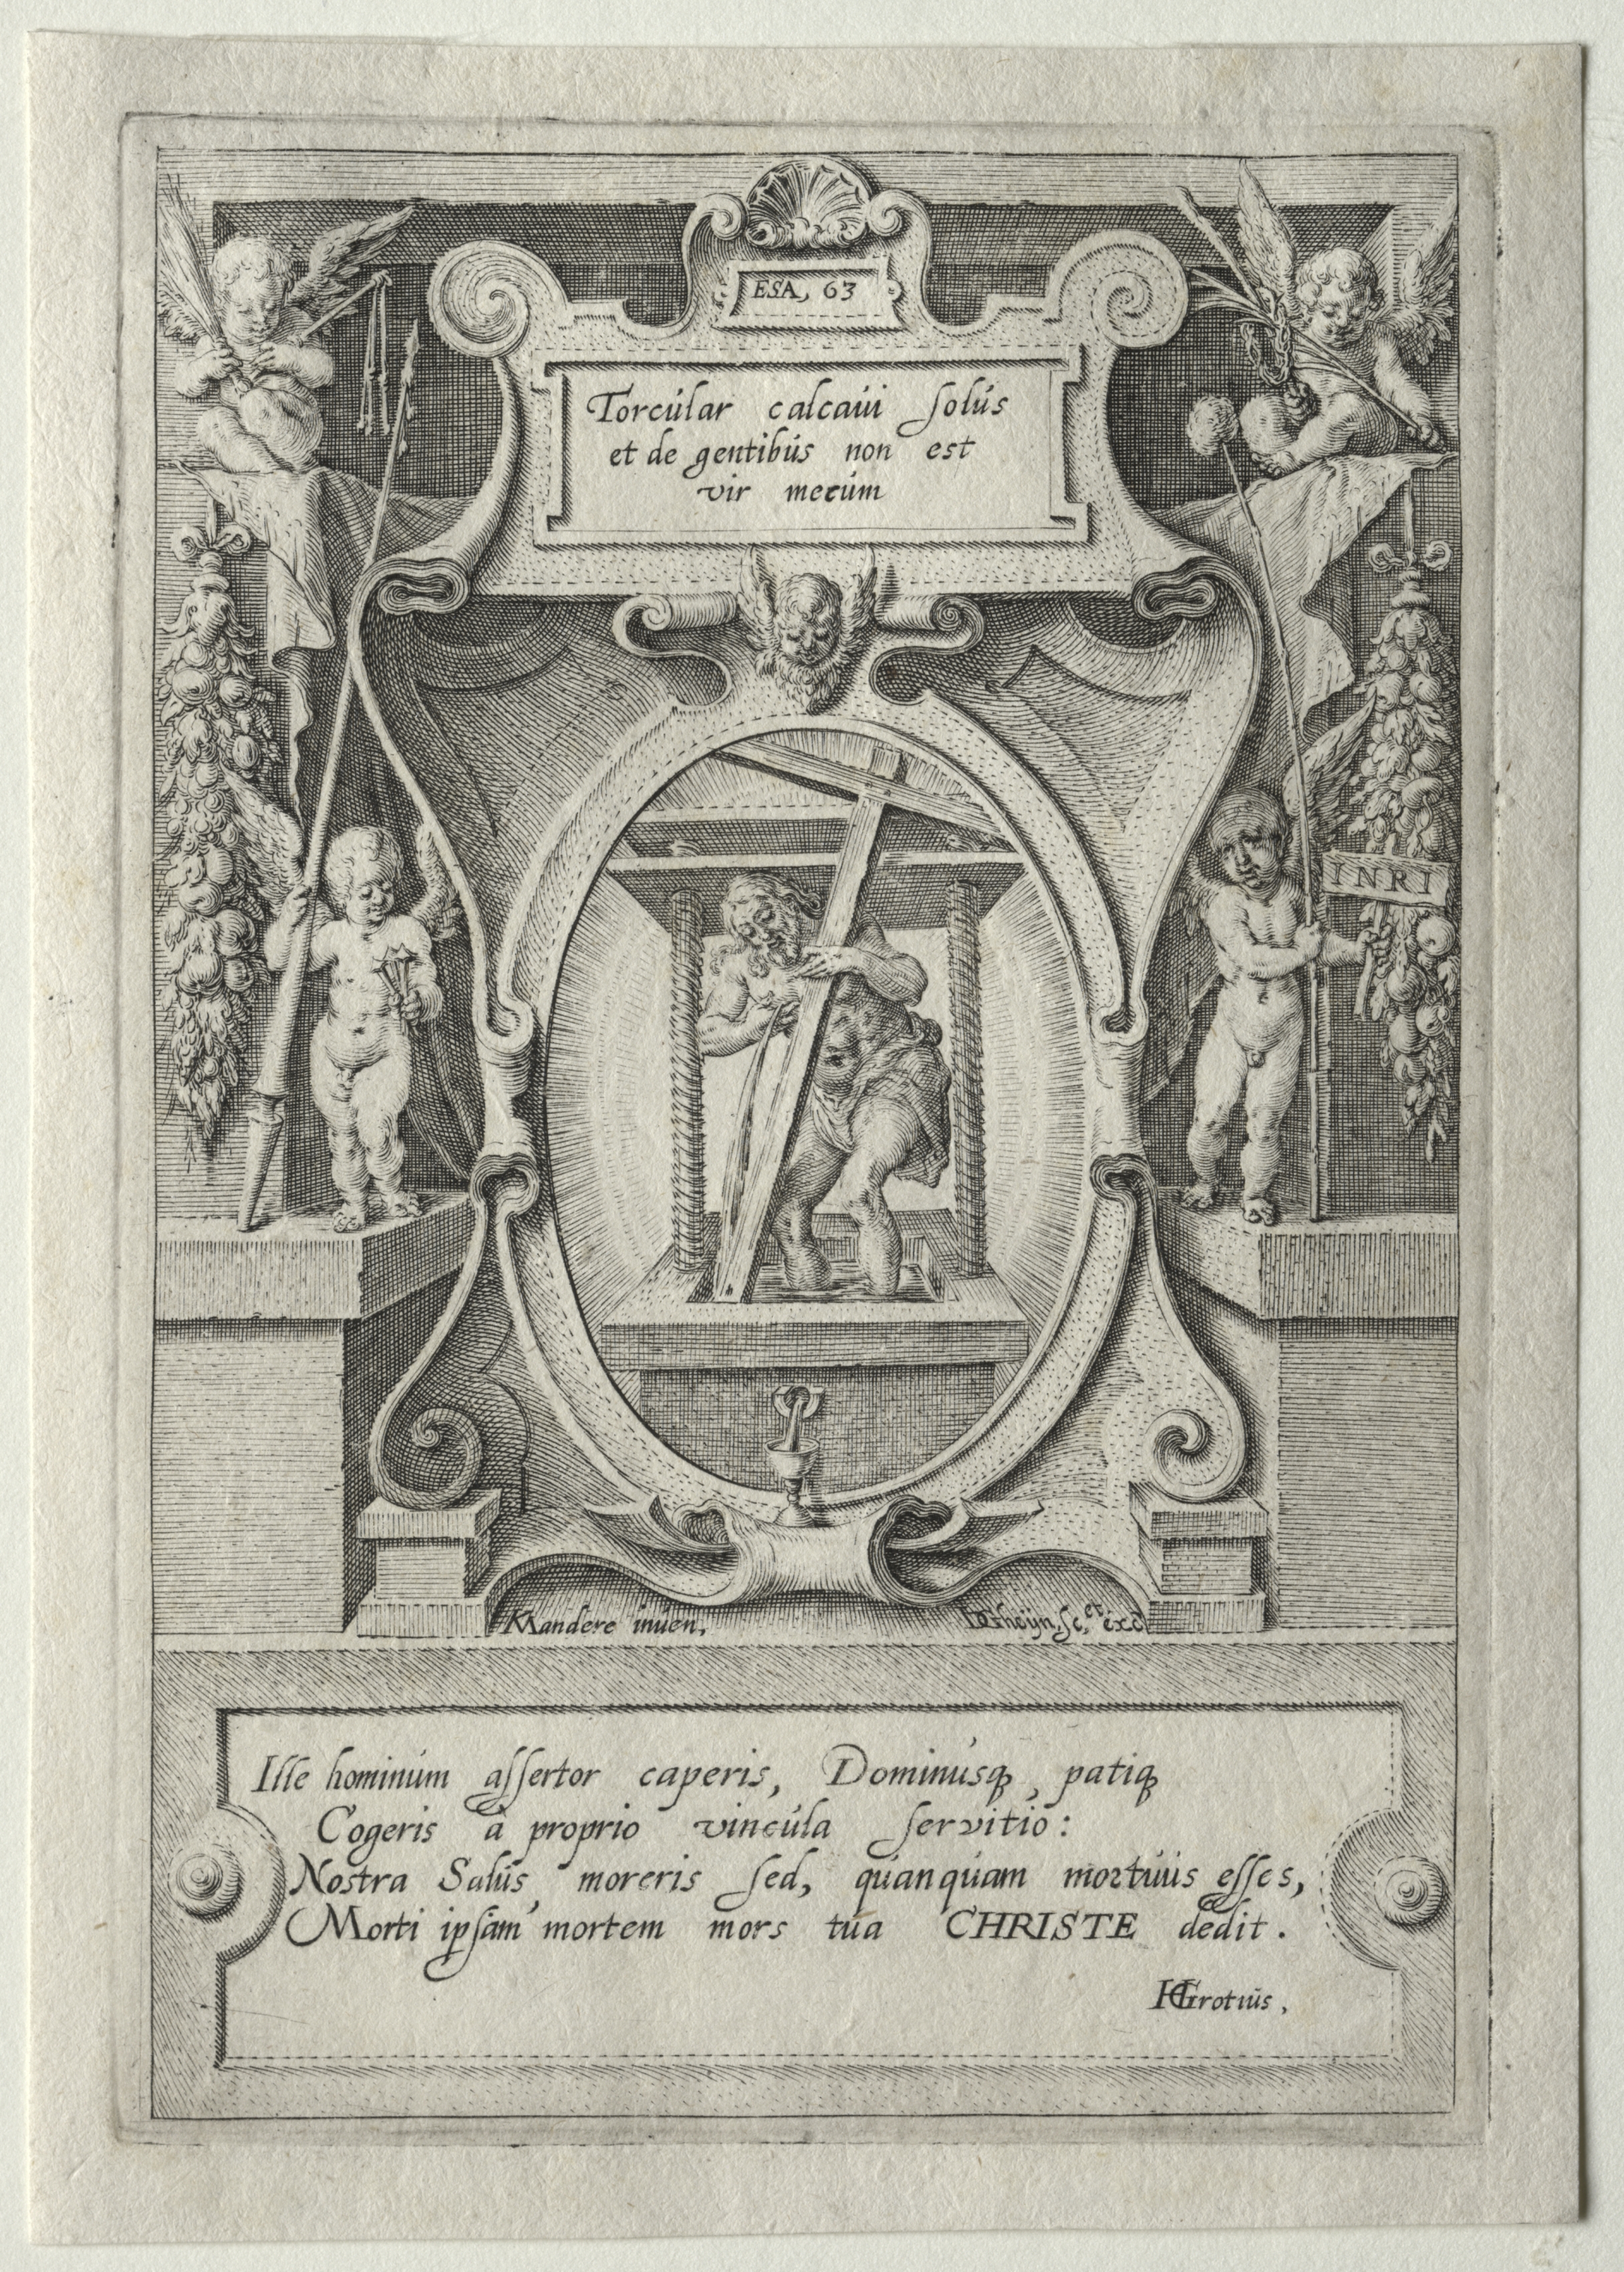 ESA, 63
Torcular calcaui ſolus
et de gentibus non est
vir mecum
INRI
KMandere inuen.
IDGheijn. ſc. et exc
Ille hominum aſſertor caperis, Dominusq, patiq
Cogeris à proprio vincula ſervitio:
Nostra Salus moreris ſed, quanquam mortuus eſſes,
Morti ipſam mortem mors tua CHRISTE dedit.
HGrotius,